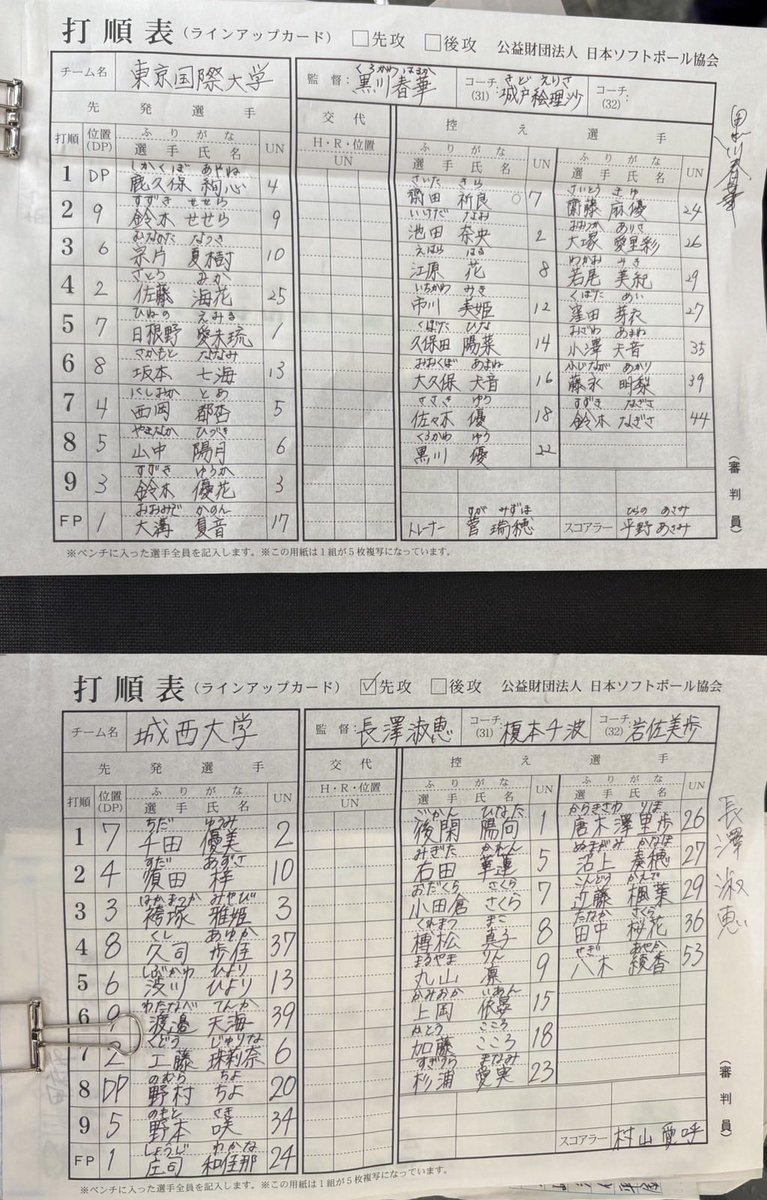 打順表（ラインアップカード） □先攻 □後攻 公益財団法人 日本ソフトボール協会
チーム名 東京国際大学
くろかわ はるか
監督：黒川春華
さど えりさ
コーチ(31)：城戸絵理沙 コーチ(32)：
先発選手 交代 控え選手
打順 位置(DP) ふりがな 選手氏名 UN H・R・位置 UN ふりがな 選手氏名 UN ふりがな 選手氏名 UN
しかくぼ あやね
1 DP 鹿久保 絢心 4
すずき せせら
2 9 鈴木 せせら 9
むなかた なつき
3 6 宗片 夏樹 10
さとう みか
4 2 佐藤 海花 25
ひねの えみる
5 7 日根野 愛未琉 1
さかもと ななみ
6 8 坂本 七海 13
にしおか とあ
7 4 西岡 都杏 5
やまなか ひづき
8 5 山中 陽月 6
すずき ゆうか
9 3 鈴木 優花 3
おおみぞ かのん
FP 1 大溝 夏音 17
さいた きら
齋田 祈良 7
いけだ なお
池田 奈央 2
えはら はる
江原 花 8
いちかわ みき
市川 美姫 12
くぼた ひな
久保田 陽菜 14
おおくぼ あまね
大久保 天音 16
ささき ゆう
佐々木 優 18
くろかわ ゆう
黒川 優 22
さいとう まゆ
齋藤 麻優 24
おおつか ありさ
大塚 愛里彩 26
わかお みき
若尾 美紀 29
くぼた めい
窪田 芽衣 27
おざわ あまね
小澤 天音 35
ふじなが あかり
藤永 明梨 39
すずき なぎさ
鈴木 なぎさ 44
すが みずほ
トレーナー 菅 瑞穂
ひらの あさみ
スコアラー 平野 あさみ
黒川春華
（審判員）
※ベンチに入った選手全員を記入します。※この用紙は1組が5枚複写になっています。
打順表（ラインアップカード） ☑先攻 □後攻 公益財団法人 日本ソフトボール協会
チーム名 城西大学 監督：長澤淑恵 コーチ(31)：榎本千波 コーチ(32)：岩佐美歩
先発選手 交代 控え選手
打順 位置(DP) ふりがな 選手氏名 UN H・R・位置 UN ふりがな 選手氏名 UN ふりがな 選手氏名 UN
ちだ ゆうみ
1 7 千田 優美 2
すだ あずさ
2 4 須田 梓 10
はかまつか みやび
3 3 袴塚 雅姫 3
くし あゆか
4 8 久司 歩佳 37
しぶかわ ひより
5 6 渋川 ひより 13
わたなべ てんか
6 9 渡邉 天海 39
くどう じゅりな
7 2 工藤 珠莉奈 6
のむら ちよ
8 DP 野村 ちよ 20
のもと さき
9 5 野本 咲 34
しょうじ わかな
FP 1 庄司 和佳那 24
ごかん ひなた
後閑 陽向 1
みぎた かれん
右田 華連 5
おだくら さくら
小田倉 さくら 7
くれまつ まこ
榑松 真子 8
まるやま りん
丸山 凛 9
かみおか いあん
上岡 15
かとう こころ
加藤 こころ 18
すぎうら まなみ
杉浦 愛実 23
からきさわ りほ
唐木澤 里歩 26
ぬまがみ かなほ
沼上 奏穂 27
こんどう かんで
近藤 楓葉 29
たなか さくら
田中 桜花 36
やぎ あやか
八木 綾香 53
スコアラー 村山 愛呼
長澤淑恵
（審判員）
※ベンチに入った選手全員を記入します。※この用紙は1組が5枚複写になっています。